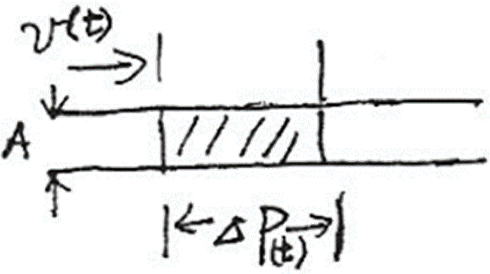 v(t)
A
Δ P(t)